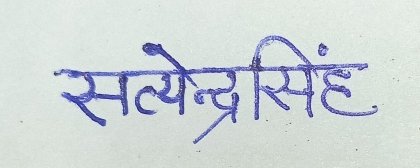 सत्येन्द्रसिंह